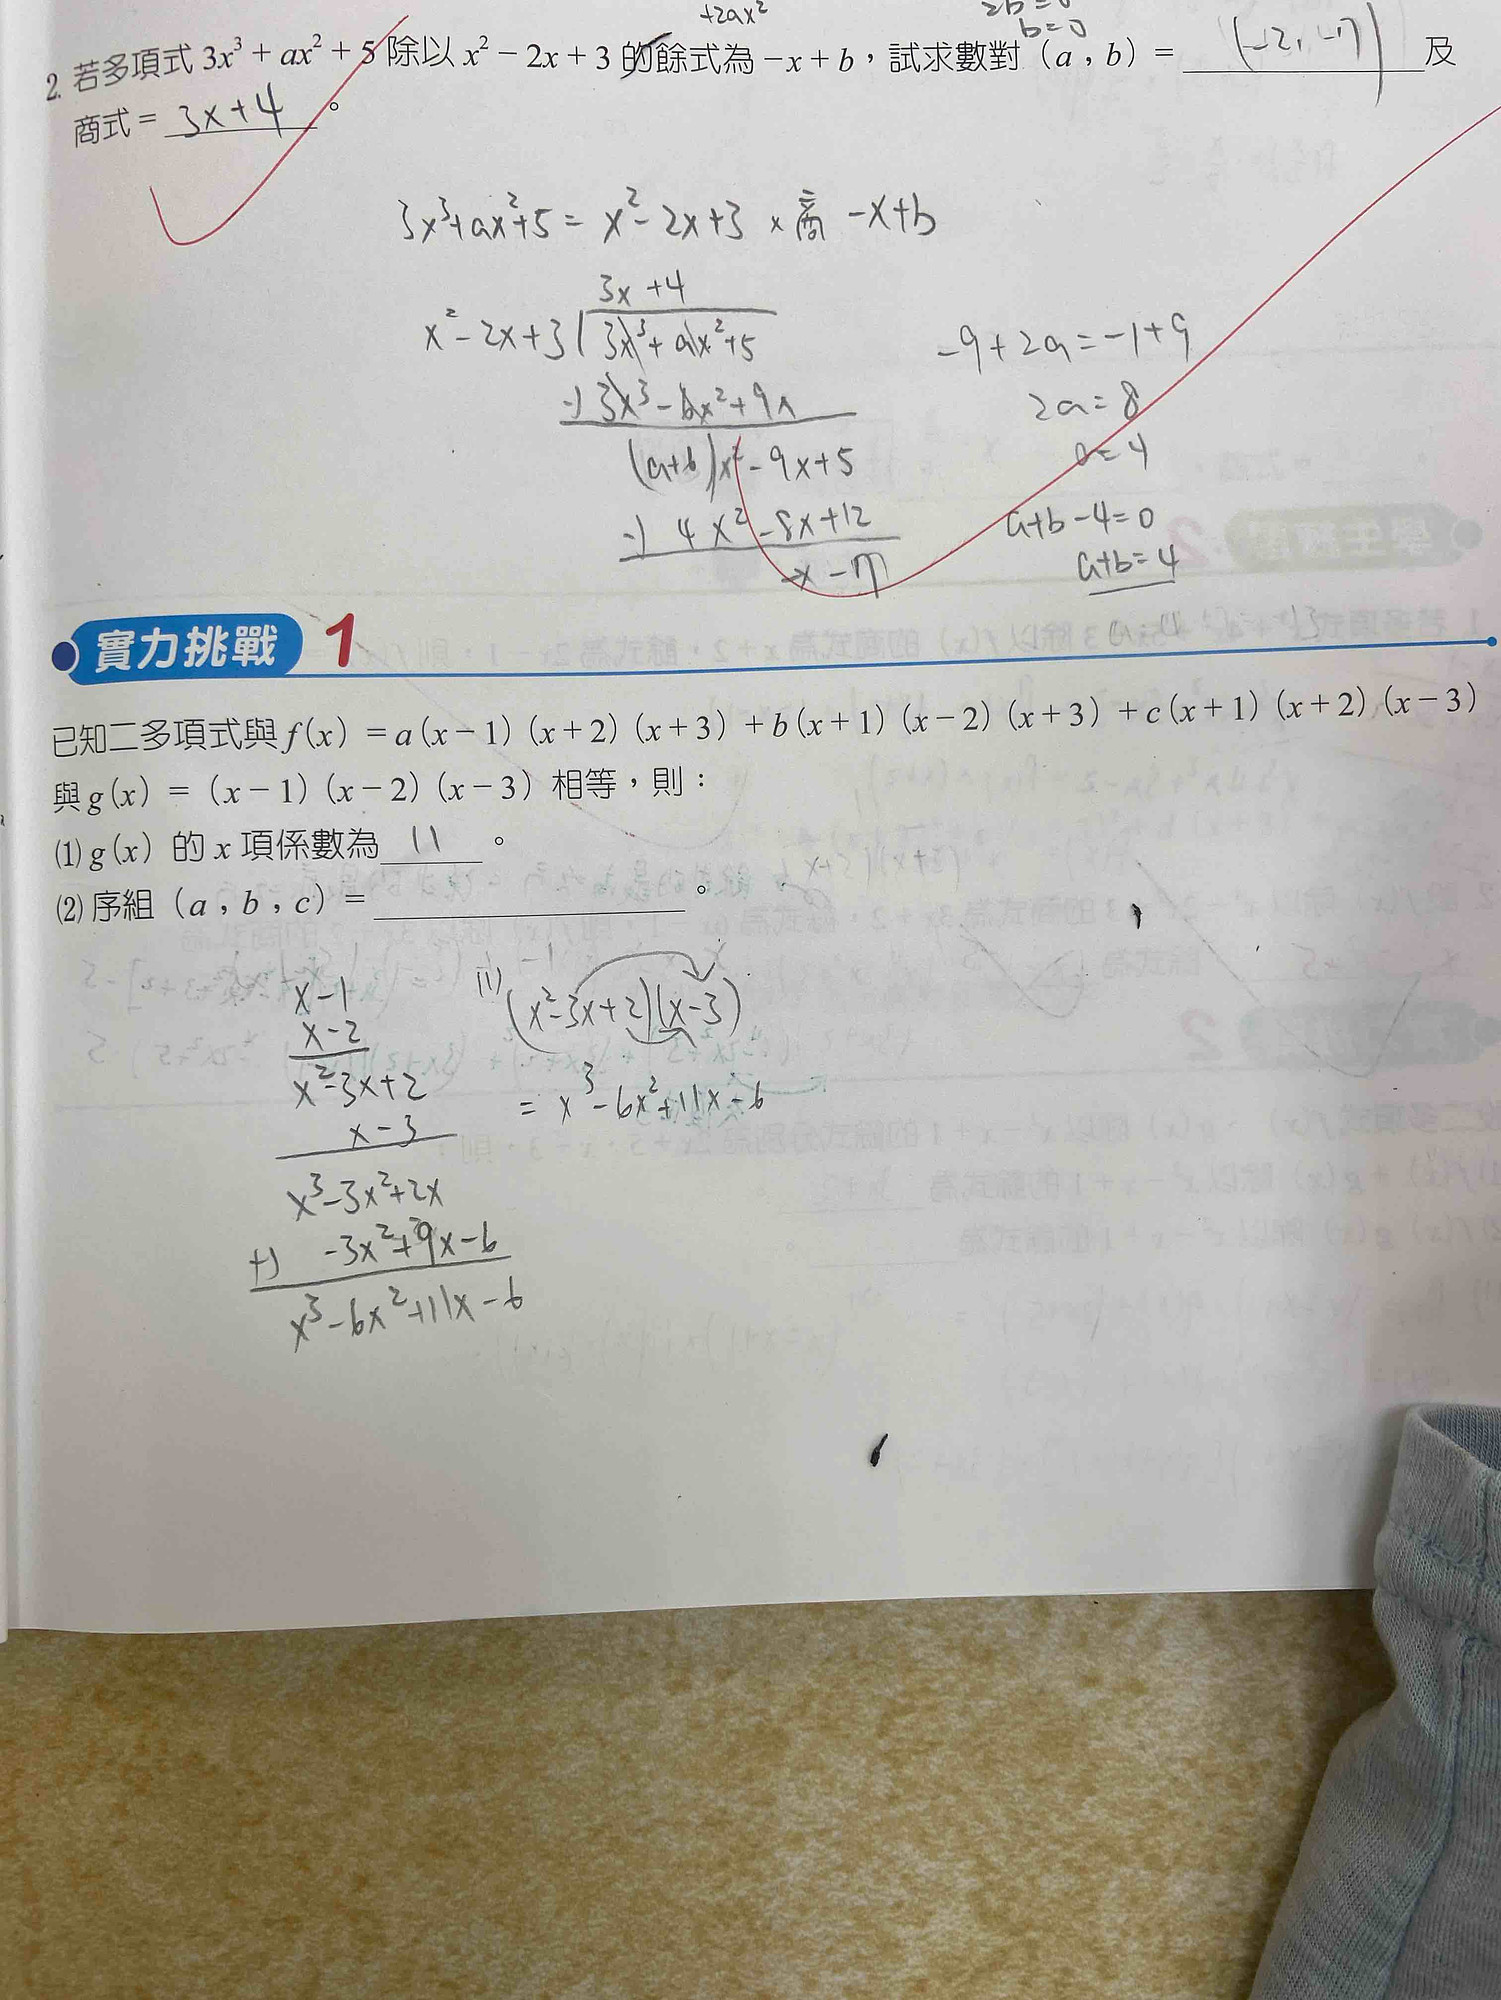 +2ax²
2b=0
b=0
2. 若多項式 3x³ + ax² + 5 除以 x² − 2x + 3 的餘式為 −x + b，試求數對（a，b）= (−2, −7) 及
商式 = 3x+4 。
3x³+ax²+5 = x²−2x+3 × 商 −x+b
3x +4
x²−2x+3 3x³+ax²+5
−) 3x³−6x²+9x
(a+6)x²−9x+5
−) 4x²−8x+12
−x−7
−9+2a=−1+9
2a=8
a=4
a+6−4=0
a+6=4
實力挑戰 1
已知二多項式與 f(x) = a(x−1)(x+2)(x+3)+b(x+1)(x−2)(x+3)+c(x+1)(x+2)(x−3)
與 g(x) = (x−1)(x−2)(x−3) 相等，則：
(1) g(x) 的 x 項係數為 11 。
(2) 序組（a，b，c）= 。
x−1
x−2
x²−3x+2
x−3
x³−3x²+2x
+) −3x²+9x−6
x³−6x²+11x−6
(1) (x²−3x+2)(x−3)
= x³−6x²+11x−6